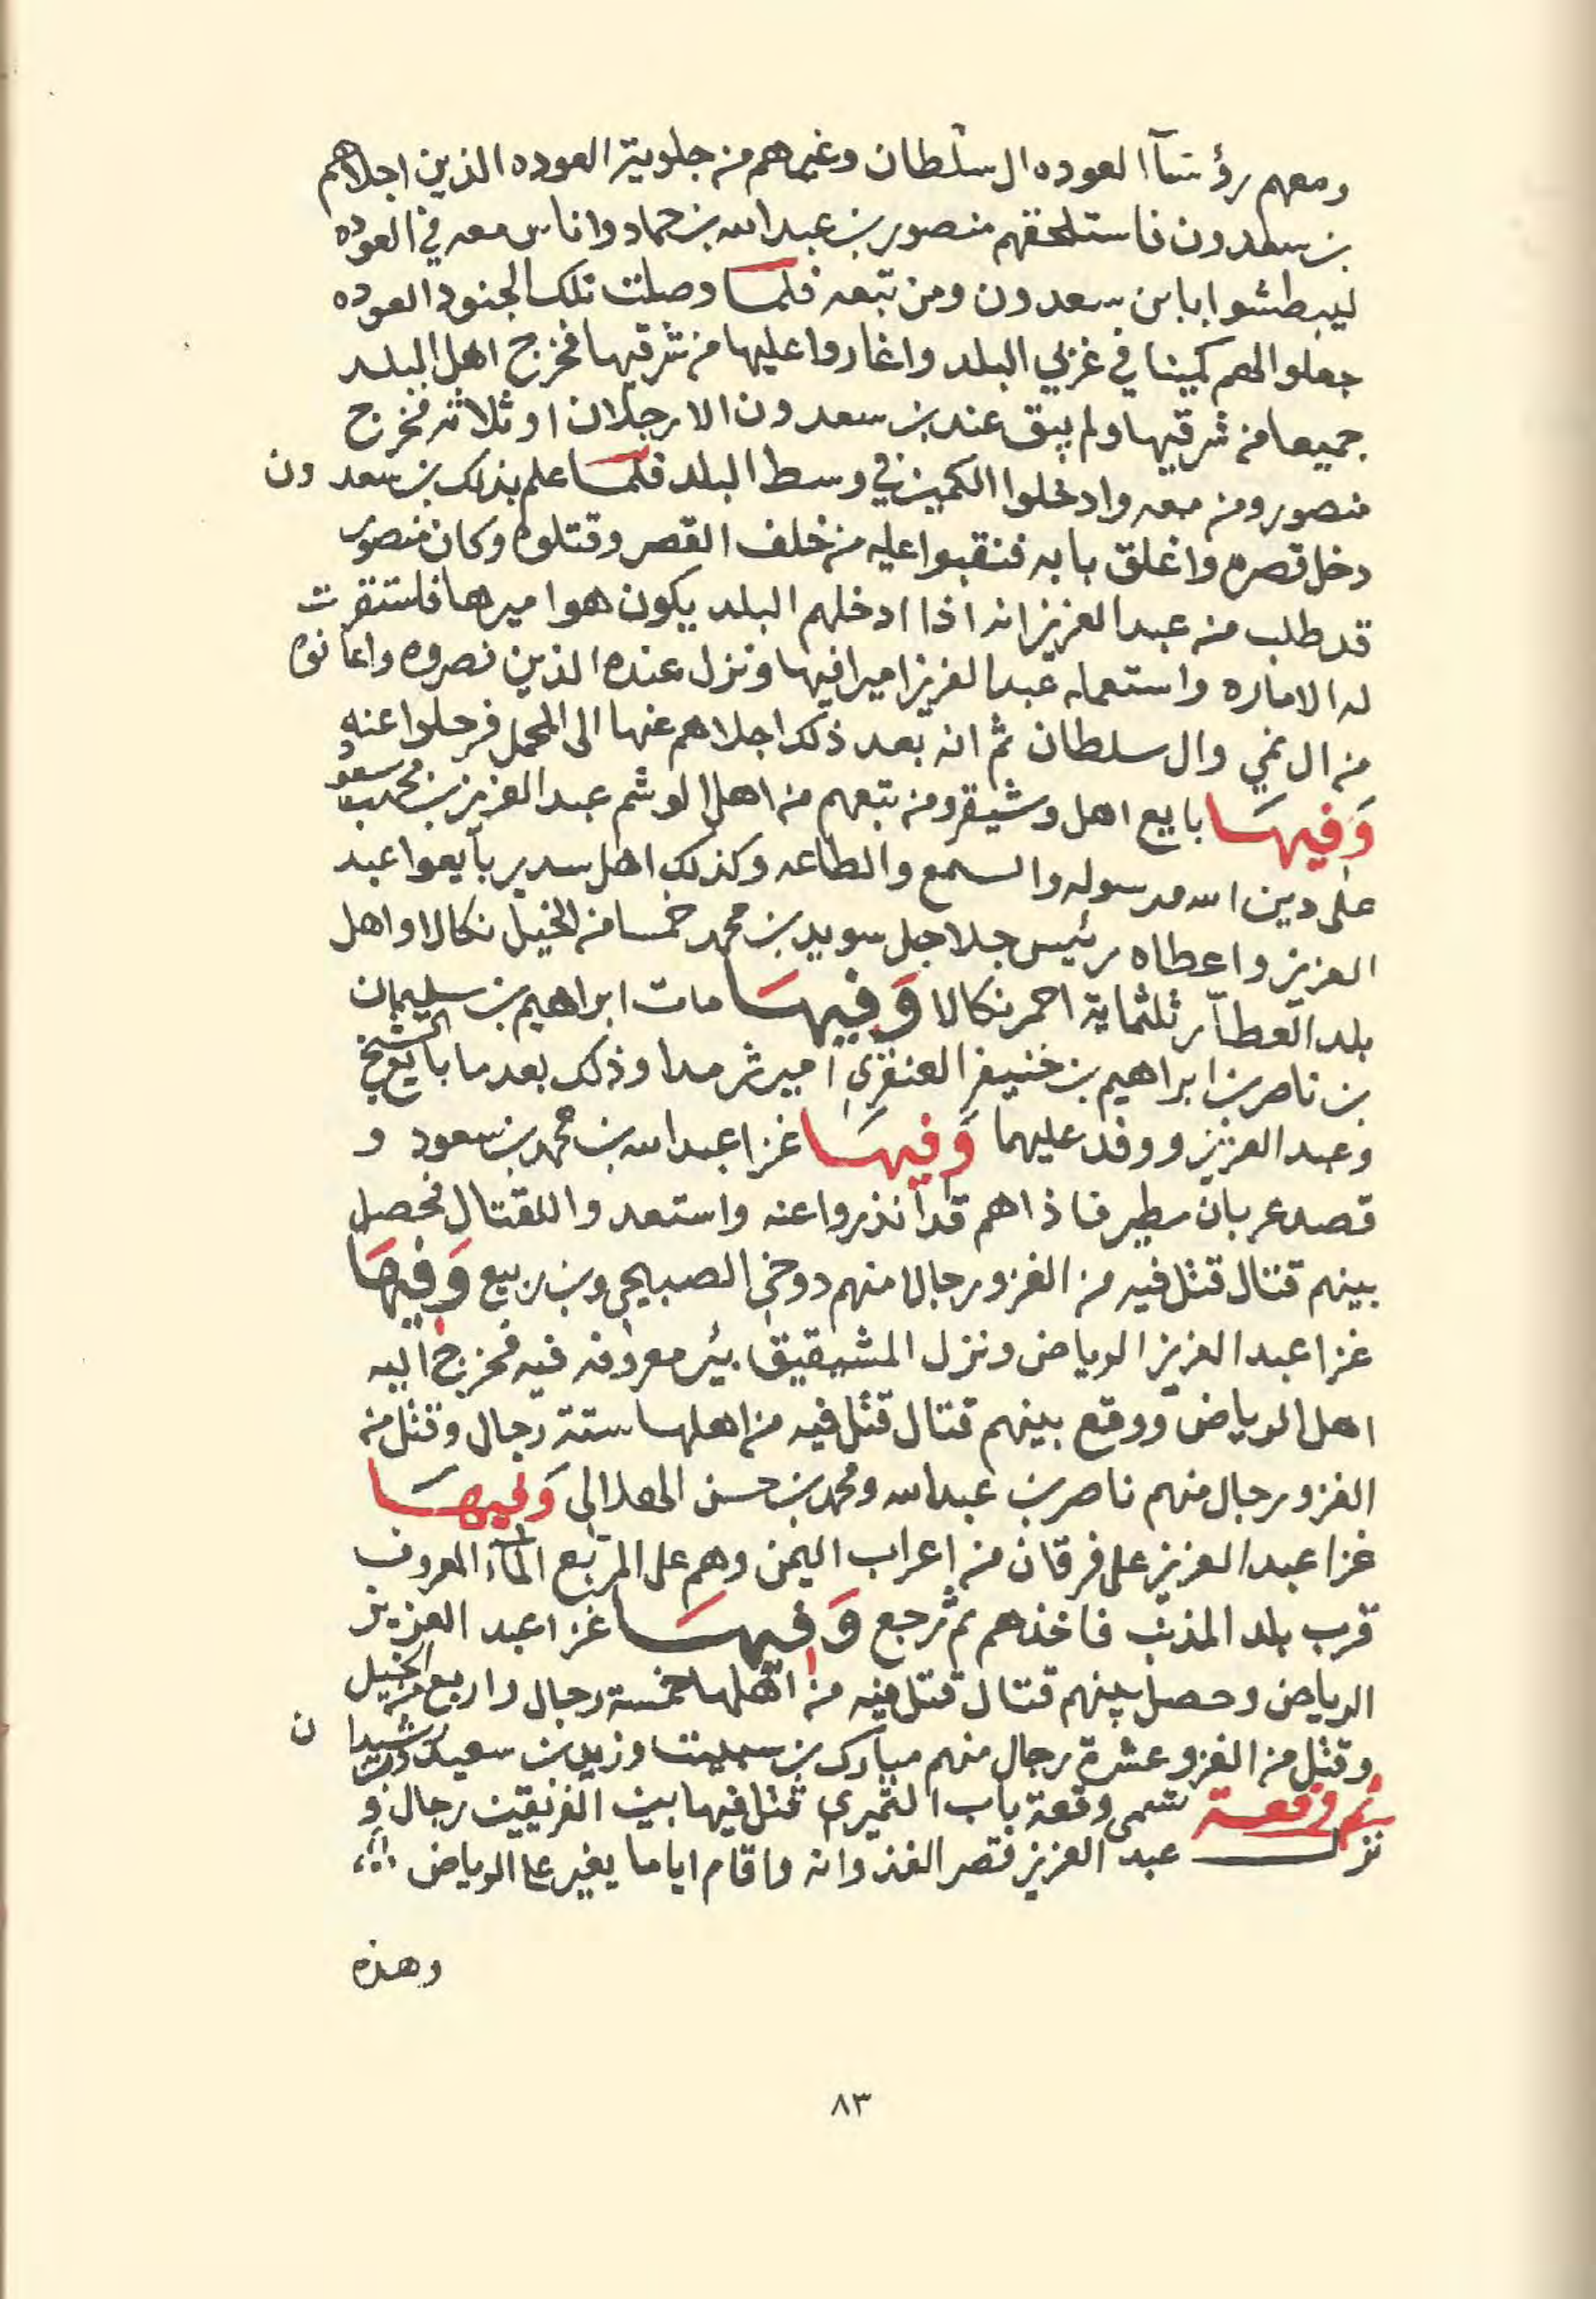 ومعهم رؤسآ العوده ال سلطان وغيرهم من جلوية العوده الذين اجلاهم
بن سعدون فاستلحقهم منصور بن عبدالله بن حماد واناس معه في العوده
ليبطشوا بابن سعدون ومن تبعه فلما وصلت تلك الجنود العوده
جعلوا لهم كمينا في غربي البلد واغاروا عليها من شرقيها فخرج اهل البلد
جميعا من شرقيها ولم يبق عند بن سعدون الا رجلان او ثلاثه فخرج
منصور ومن معه وادخلوا الكمين في وسط البلد فلما علم بذلك بن سعدون
دخل قصره واغلق بابه فنقبوا عليه من خلف القصر وقتلوه وكان منصور
قد طلب من عبدالعزيز انه اذا ادخلهم البلد يكون هو اميرها فاستقرت
له الاماره واستعمله عبدالعزيز اميرا فيها ونزل عنده الذين نصروه واعانوه
من ال نمي وال سلطان ثم انه بعد ذلك اجلاهم عنها الى المحمل فرحلوا عنه
وفيها بايع اهل وشيقر ومن تبعهم من اهل الوشم عبد العزيز بن محمد بن سعود
على دين الله ورسوله والسمع والطاعه وكذلك اهل سدير بآيعوا عبد
العزيز واعطاه رئيس جلاجل سويد بن محمد خمسا من الخيل نكالا واهل
بلد العطآر ثلثماية احمر نكالا وفيها مات ابراهيم بن سليمان
بن ناصر بن ابراهيم بن خنيفر العنقري امير ثرمدا وذلك بعد ما بايع الشيخ
وعبد العزيز ووفد عليهما وفيها غزا عبدالله بن محمد بن سعود و
قصد عربان مطير فاذا هم قد انذروا عنه واستعدوا للقتال فحصل
بينهم قتال قتل فيه من الغزو رجال منهم دوخي الصبيحي وبن ربيع وفيها
غزا عبد العزيز الرياض ونزل المشيقيق بئر معروفه فيه فخرج اليه
اهل الرياض ووقع بينهم قتال قتل فيه من اهلها ستة رجال وقتل من
الغزو رجال منهم ناصر بن عبدالله ومحمد بن حسن الهلالي وفيها
غزا عبد العزيز على فرقان من اعراب اليمن وهم على المربع المآء المعروف
قرب بلد المذنب فاخذهم ثم رجع وفيها غزا عبد العزيز
الرياض وحصل بينهم قتال قتل فيه من اهلها خمسة رجال واربع من الخيل
وقتل من الغزو عشرة رجال منهم مبارك بن سبيت وزيد بن سعيد ورشيدان
ثم وقعة تسمى وقعة باب الثميري قتل فيها بين الفريقين رجال و
نزل عبد العزيز قصر الغذوانه واقام اياما يغير على الرياض
وهذه
٨٣